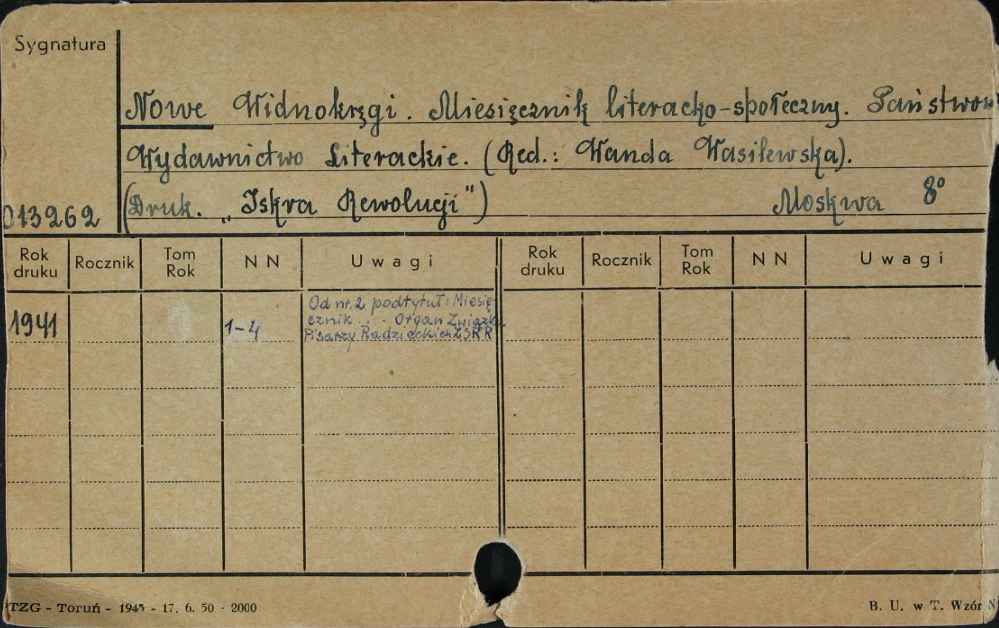 Sygnatura
Nowe Widnokręgi. Miesięcznik literacko-społeczny. Państwow
Wydawnictwo Literackie. (Red.: Wanda Wasilewska).
013262 (Druk. „Iskra Rewolucji") Moskwa 8°
Rok druku Rocznik Tom Rok NN Uwagi Rok druku Rocznik Tom Rok NN Uwagi
1941 1-4 Od nr. 2 podtytuł: Miesię-
cznik ... Organ Związku
Pisarzy Radzieckich ZSRR
TZG - Toruń - 1945 - 17. 6. 50 - 2000 B. U. w T. Wzór N